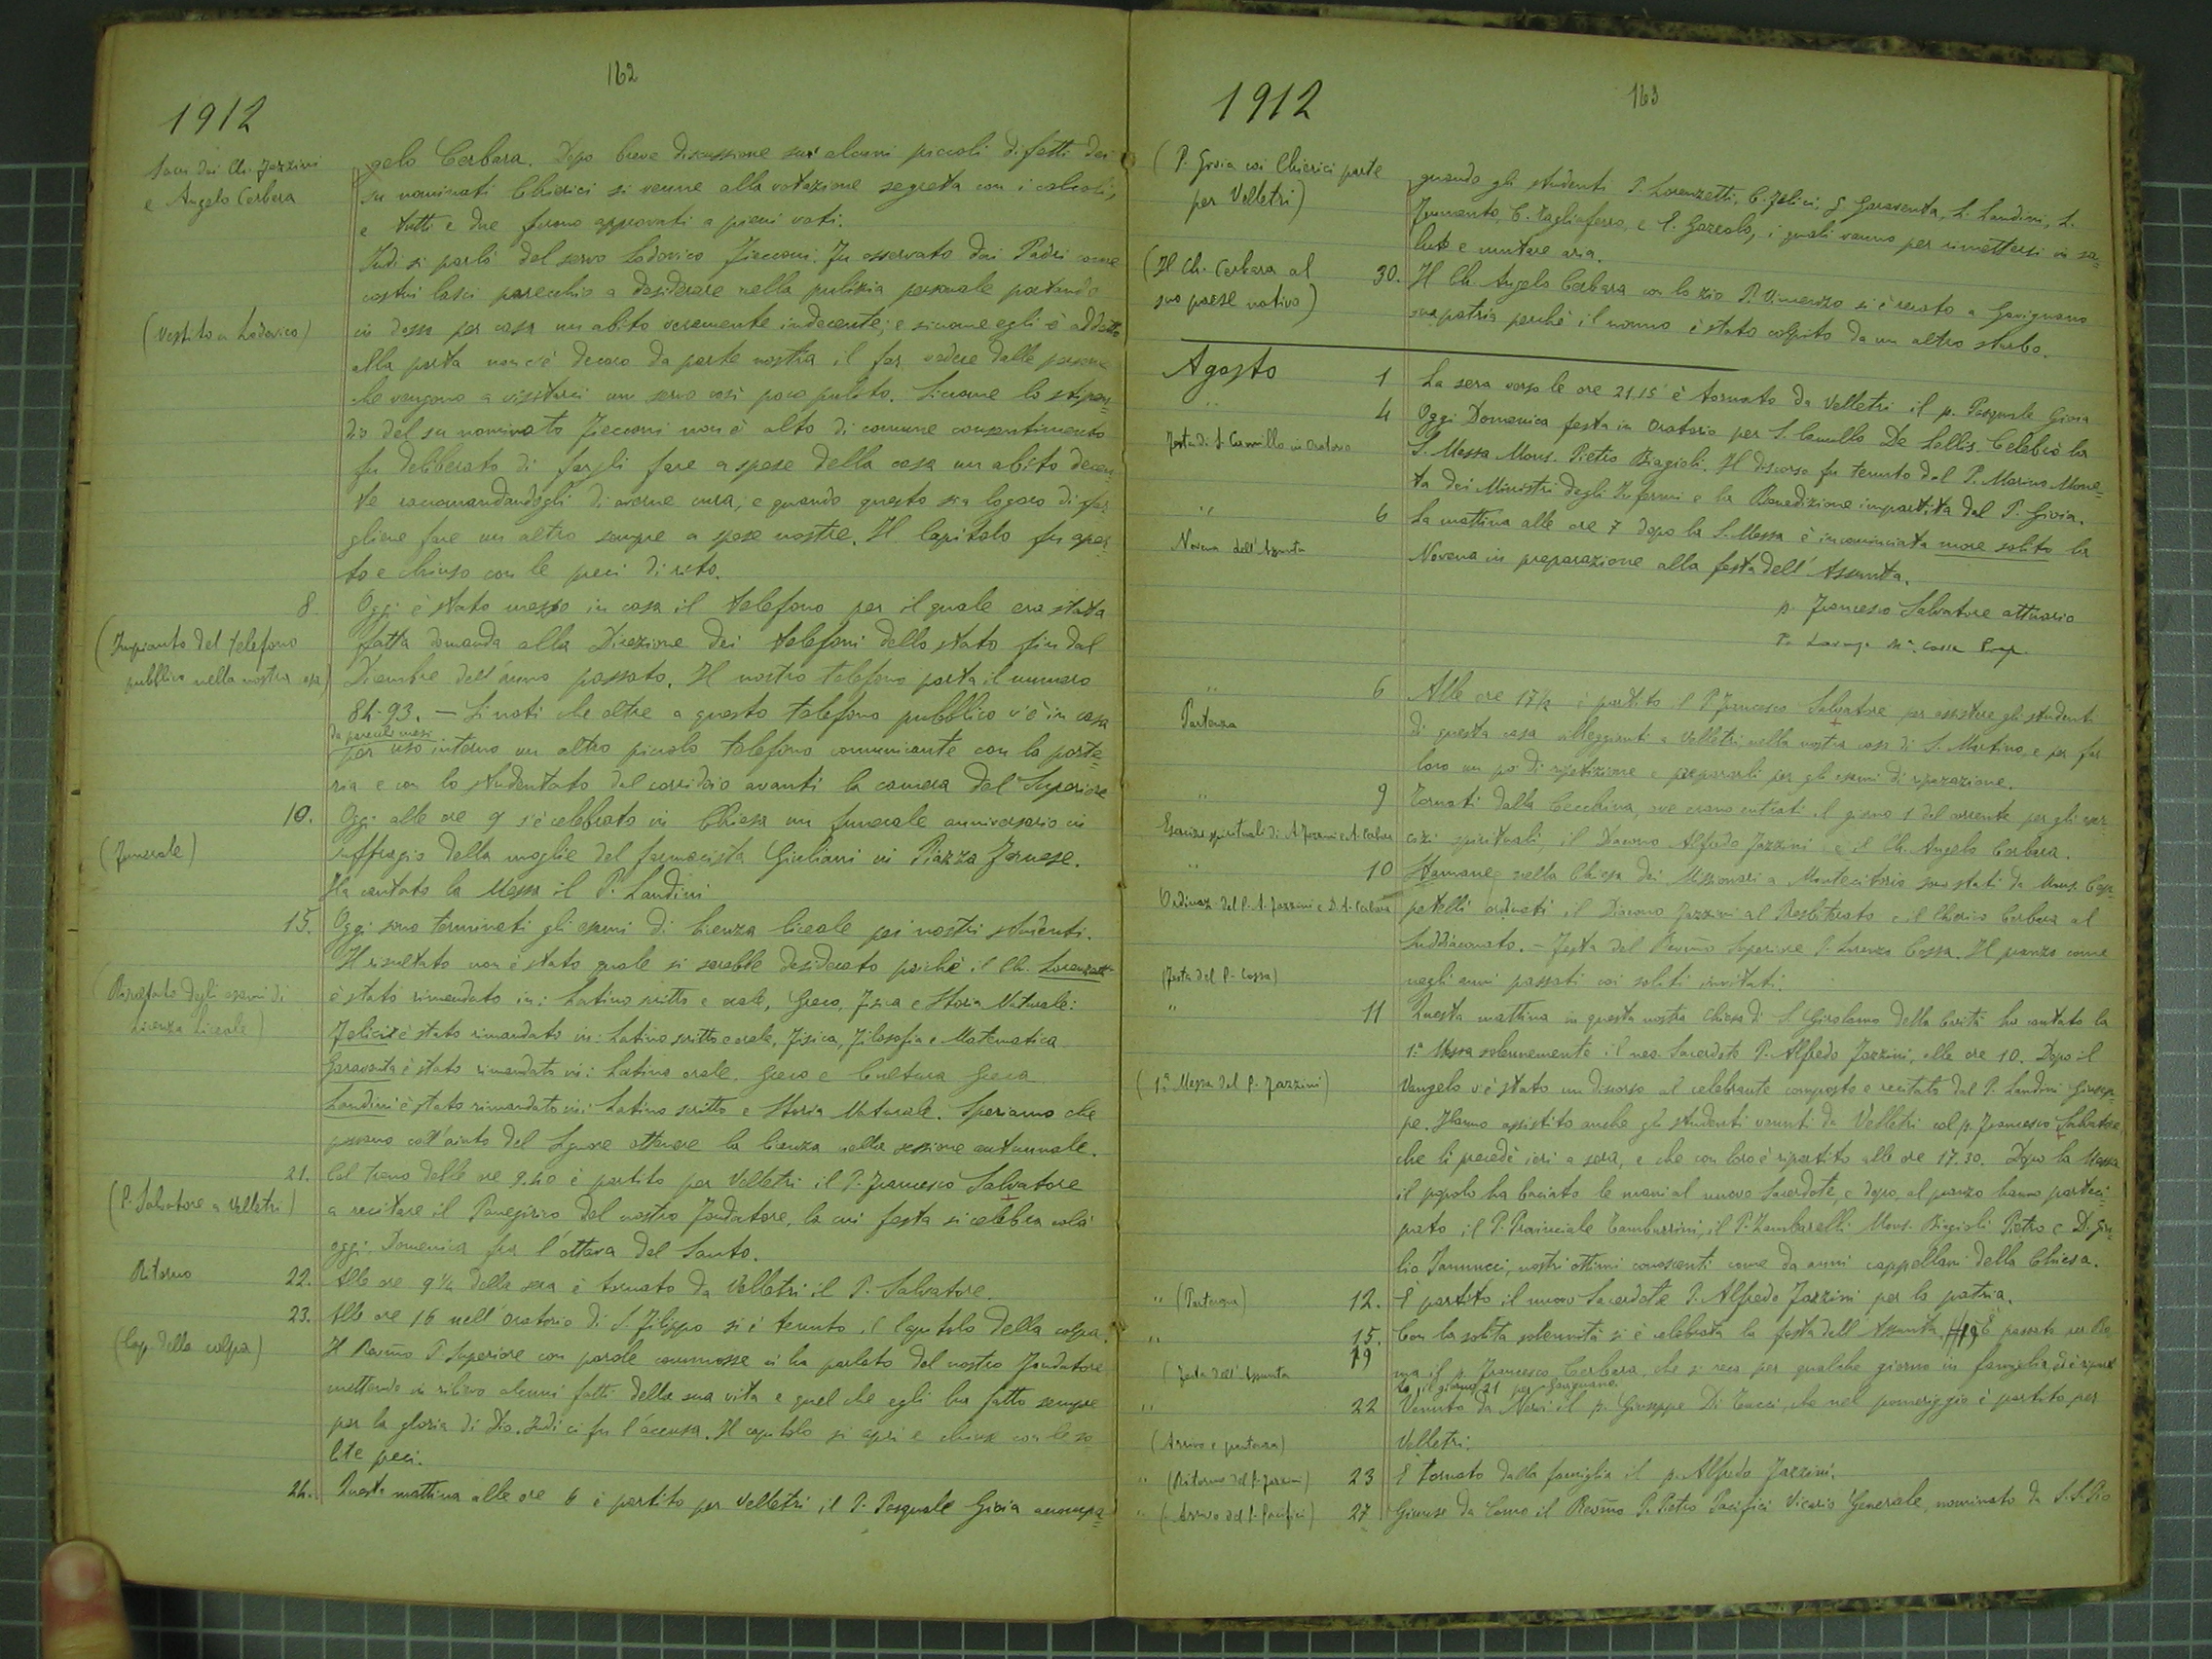 162
1912
Sacri dei Ch. Fazzini
e Angelo Cerbara
gelo Cerbara. Dopo breve discussione sui alcuni piccoli difetti dei
su nominati Chierici si venne alla votazione segreta con i calcoli,
e tutti e due furono approvati a pieni voti.
Indi si parlò del servo Lodovico Fiecconi. Fu osservato dai Padri come
costui lasci parecchio a desiderare nella pulizia personale portando
(Vestito a Lodovico)
in dosso per casa un abito veramente indecente; e siccome egli è addetto
alla porta non c'è decoro da parte nostra il far vedere dalle persone
che vengono a visitarci un servo così poco pulito. Siccome lo stipen=
dio del su nominato Fiecconi non è alto di comune consentimento
fu deliberato di fargli fare a spese della casa un abito decen=
te raccomandandogli di averne cura; e quando questo sia logoro di far
gliene fare un altro sempre a spese nostre. Il Capitolo fu aper=
to e chiuso con le preci di rito.
8. Oggi è stato messo in casa il telefono per il quale era stata
(Impianto del telefono
pubblico nella nostra casa)
fatta domanda alla Direzione dei telefoni dello stato fin dal
Dicembre dell'anno passato. Il nostro telefono porta il numero
84-93. — Si noti che oltre a questo telefono pubblico v'è in casa
da parecchi mesi
per uso interno un altro piccolo telefono comunicante con la porte=
ria e con lo studentato dal corridoio avanti la camera del Superiore
10. Oggi alle ore 9 s'è celebrato in Chiesa un funerale anniversario in
(Funerale)
suffragio della moglie del farmacista Giuliani in Piazza Farnese.
Ha cantato la Messa il P. Landini
15. Oggi sono terminati gli esami di licenza liceale pei nostri studenti.
Il risultato non è stato quale si sarebbe desiderato poichè il Ch. Lorenzetti
(Risultato degli esami di
Licenza Liceale)
è stato rimandato in: Latino scritto e orale, Greco, Fisica e Storia Naturale:
Felici è stato rimandato in: Latino scritto e orale, Fisica, Filosofia e Matematica
Garaventa è stato rimandato in: Latino orale, Greco e Cultura Greca
Landini è stato rimandato in: Latino scritto e Storia Naturale. Speriamo che
possano coll'aiuto del Signore ottenere la licenza nella sessione autunnale.
21. Col treno delle ore 9.40 è partito per Velletri il P. Francesco Salvatore
(P. Salvatore a Velletri)
a recitare il Panegirico del nostro Fondatore, la cui festa si celebra colà
oggi, Domenica fra l'ottava del Santo.
Ritorno
22. Alle ore 9½ della sera è tornato da Velletri il P. Salvatore.
23. Alle ore 16 nell'oratorio di S. Filippo si è tenuto il Capitolo della colpa.
(Cap. della colpa)
Il Revmo P. Superiore con parole commosse ci ha parlato del nostro Fondatore
mettendo in rilievo alcuni fatti della sua vita e quel che egli ha fatto sempre
per la gloria di Dio. Indi ci fu l'accusa. Il capitolo si aprì e chiuse con le so=
lite preci.
24. Questa mattina alle ore 6 è partito per Velletri il P. Pasquale Gioia accompa=
163
1912
(P. Gioia coi Chierici parte
per Velletri)
gnando gli studenti P. Lorenzetti, C. Felici, G. Garaventa, L. Landini, L.
Frumento, C. Tagliaferro, e E. Gazzolo, i quali vanno per rimettersi in sa=
lute e mutare aria.
(Il Ch. Cerbara al
suo paese nativo)
30. Il Ch. Angelo Cerbara con lo zio P. Vincenzo si è recato a Gavignano
sua patria perchè il nonno è stato colpito da un altro sturbo.
Agosto
1 La sera verso le ore 21,15 è tornato da Velletri il p. Pasquale Gioia
" 4 Oggi Domenica festa in Oratorio per S. Camillo De Lellis. Celebrò la
Festa di S. Camillo in Oratorio
S. Messa Mons. Pietro Biagioli. Il discorso fu tenuto dal P. Marino Mone=
ta dei Ministri degli Infermi e la Benedizione impartita dal P. Gioia.
" 6 La mattina alle ore 7 dopo la S. Messa è incominciata more solito la
Novena dell'Assunta
Novena in preparazione alla festa dell'Assunta.
p. Francesco Salvatore attuario
P. Lorenzo M.a Cossa Prep.
" 6 Alle ore 17½ è partito il P. Francesco Salvatore per assistere gli studenti
Partenza
di questa casa villeggianti a Velletri nella nostra casa di S. Martino, e per far
loro un pò di ripetizione e prepararli per gli esami di riparazione.
" 9 Tornati dalla Cecchina, ove erano entrati il giorno 1 del corrente per gli eser=
Esercizi spirituali di A. Fazzini e A. Cerbara
cizi spirituali, il Diacono Alfredo Fazzini e il Ch. Angelo Cerbara.
" 10 Stamane nella Chiesa dei Missionari a Montecitorio sono stati da Mons. Cep=
Ordinaz. del P. A. Fazzini e D. A. Cerbara
petelli ordinati il Diacono Fazzini al Presbiterato e il Chierico Cerbara al
Suddiaconato. — Festa del Revmo Superiore P. Lorenzo Cossa. Il pranzo come
(Festa del P. Cossa)
negli anni passati coi soliti invitati.
" 11 Questa mattina in questa nostra Chiesa di S. Girolamo della Carità ha cantato la
1a Messa solennemente il neo Sacerdote P. Alfredo Fazzini, alle ore 10. Dopo il
(1a Messa del P. Fazzini)
Vangelo v'è stato un discorso al celebrante composto e recitato dal P. Landini Giusep=
pe. Hanno assistito anche gli studenti venuti da Velletri col p. Francesco Salvatore
che li precedè ieri a sera, e che con loro è ripartito alle ore 17.30. Dopo la Messa
il popolo ha baciato le mani al nuovo Sacerdote, e dopo, al pranzo hanno parteci=
pato il P. Provinciale Tamburrini, il P. Zambarelli, Mons. Biagioli Pietro e D. Giu=
lio Iannucci, nostri ottimi conoscenti come da anni cappellani della Chiesa.
" (Partenza) 12. È partito il nuovo Sacerdote P. Alfredo Fazzini per la patria.
" 15. Con la solita solennità si è celebrata la festa dell'Assunta. 19 È passato per Ro=
19
(Festa dell'Assunta
ma il p. Francesco Cerbara, che si reca per qualche giorno in famiglia, ed è ripart
to il giorno 21 per Gavignano.
" 22 Venuto da Nervi il p. Giuseppe Di Tucci, che nel pomeriggio è partito per
(Arrivo e partenza)
Velletri.
" (Ritorno del P. Fazzini) 23 È tornato dalla famiglia il p. Alfredo Fazzini.
" (Arrivo del P. Pacifici) 27 Giunse da Como il Revmo P. Pietro Pacifici Vicario Generale, nominato da S. S. Pio